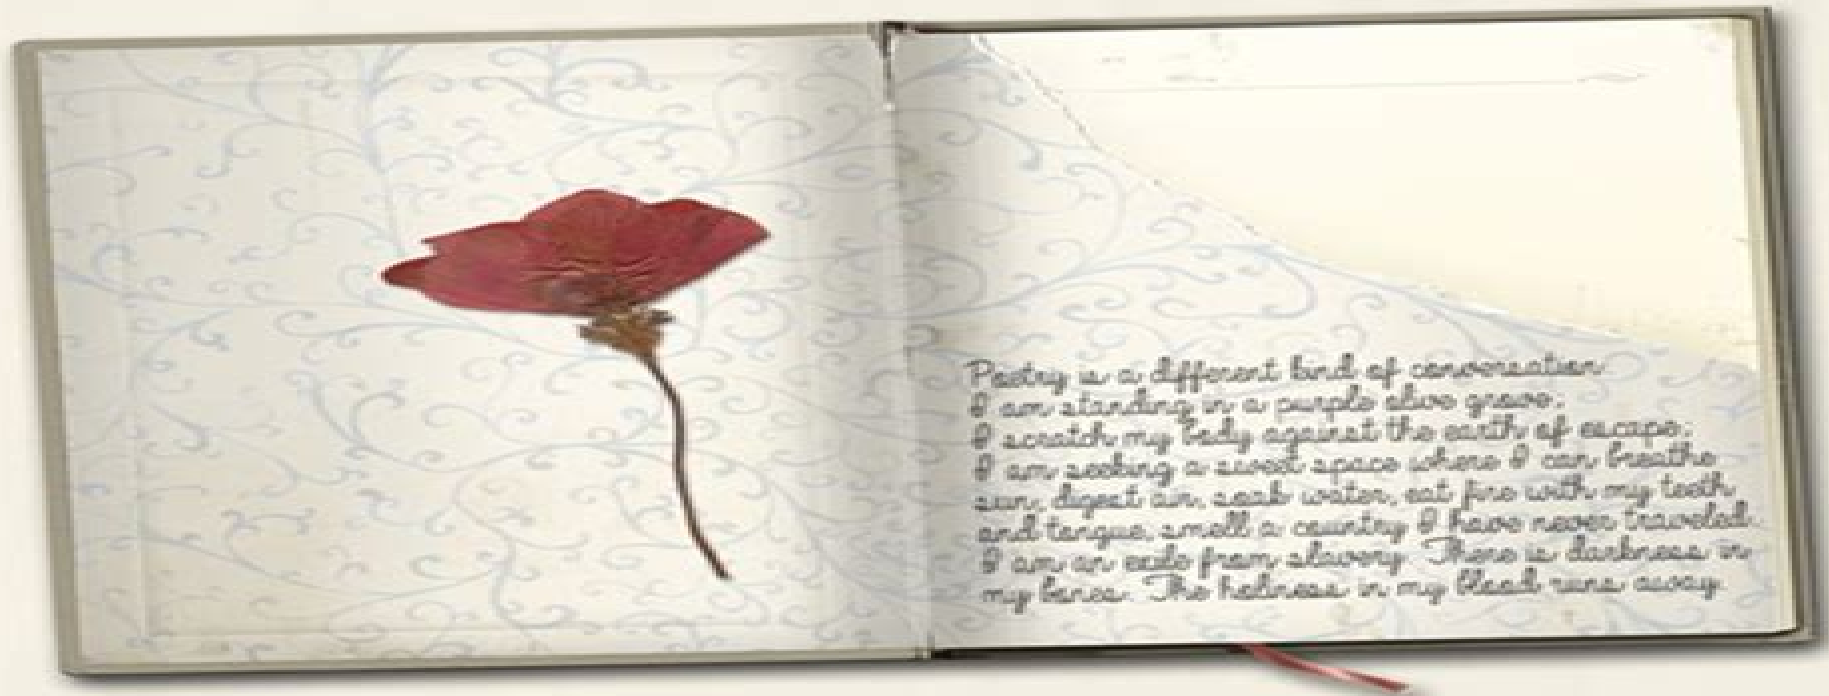 Poetry is a different kind of conversation.
I am standing in a purple olive grove;
I scratch my body against the earth of escape;
I am seeking a sweet space where I can breathe
sun, digest air, soak water, eat fire with my teeth
and tongue, smell a country I have never traveled.
I am an exile from slavery. There is darkness in
my bones. The holiness in my blood runs away.